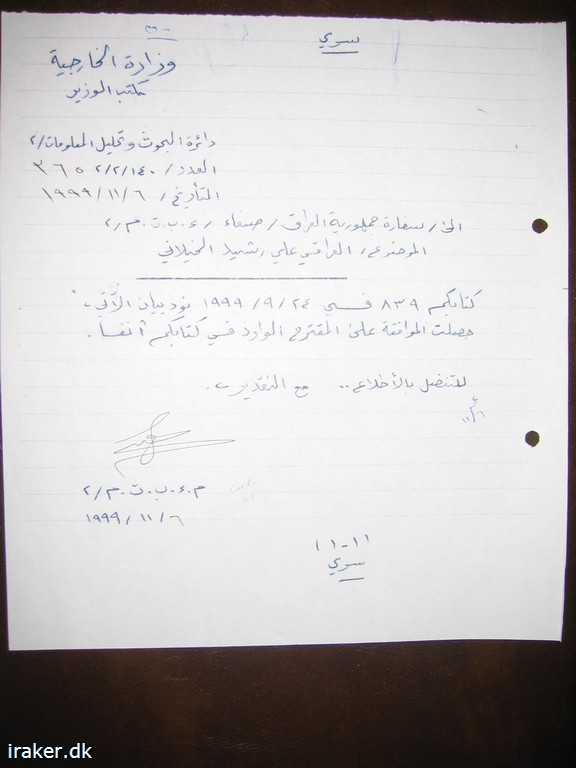 سري
وزارة الخارجية
مكتب الوزير
دائرة البحوث وتحليل المعلومات/٢
العدد/ ٢/٢/١٤٠ ٣٦٥
التأريخ/ ١٩٩٩/١١/٦
الى/ سفارة جمهورية العراق/ صنعاء / ع.ب.ت.م/٢
الموضوع/ العراقي علي رشيد الخيلاني
كتابكم ٨٣٩ في ١٩٩٩/٩/٢٤ نود بيان الآتي،
حصلت الموافقة على المقترح الوارد في كتابكم آنفا.
للتفضل بالأطلاع .. مع التقدير.
٦/١١
م.ع.ب.ت.م/٢
١٩٩٩/١١/٦
١-١١
سري
iraker.dk